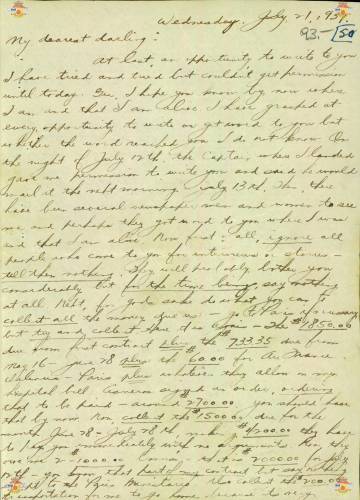 Wednesday, July 21, 1937.
93-150
My dearest darling:
At last, an opportunity to write to you
I have tried and tried but couldn't get permission
until today. I hope you know by now where
I am and that I am alive. I have grasped at
every opportunity to write or get word to you but
whether the word reached you I do not know. On
the night of July 12th, the Captain, where I landed
gave me permission to write you and said he would
mail it the next morning July 13th. Then, there
have been several newspaper men and women to see
me and perhaps they got word to you where I was
and that I am alive. Now first of all, ignore all
people who come to you for interviews or stories -
tell them nothing. They will probably bother you
considerably but for the time being, say nothing
at all. Next, for gods sake do what you can to
collect all the money due us - go to Paris if necessary
but try and collect - The $1850.00
due from first contract plus the 733.35 due from
May 16 - June 28 plus the $60.00 for Air France
Valencia - Paris plus whatever they allow on my
hospital bill. order, ordering
that to be paid - around $2700.00. you should have
that by now. Now, collect the $1500.00 due for the
month June 28 - July 28th
to pay you immediately with no arguments. Now, they
owe you 2 - 1000.00 $2000.00 for July
my contract but say nothing
to the Air Ministry. Also collect the $200.00
transportation for me to go home